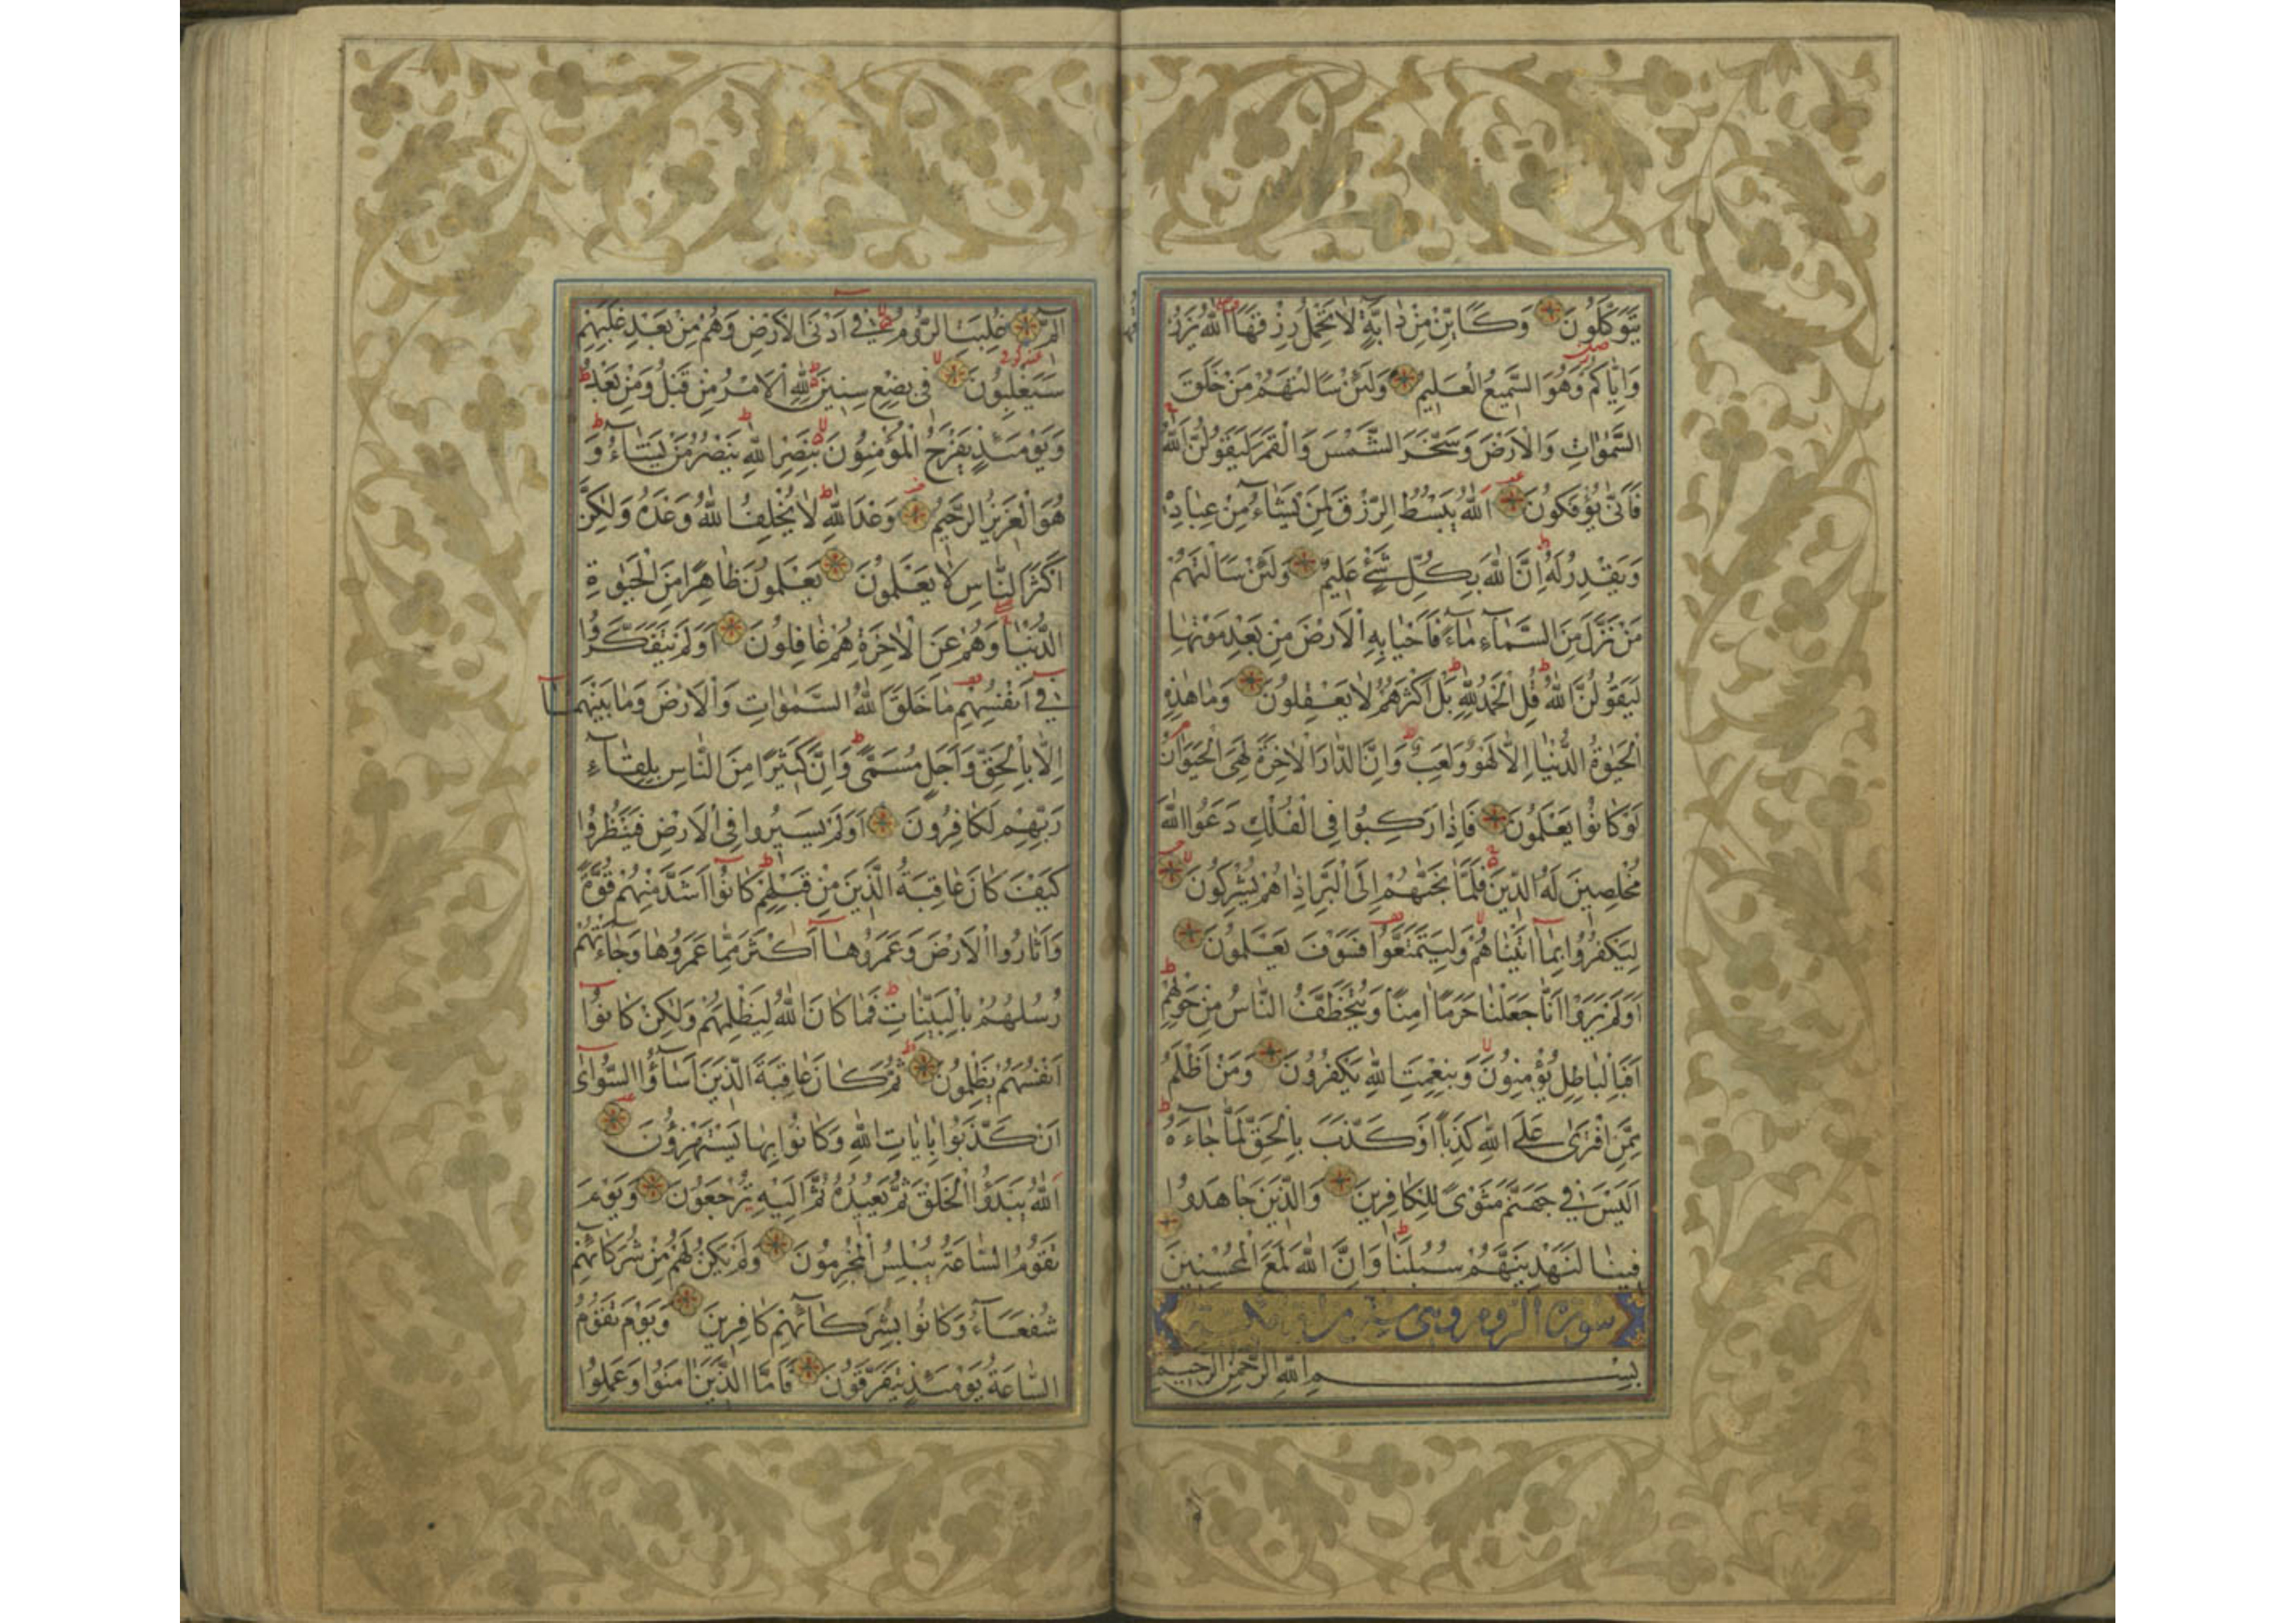 يَتَوَكَّلُونَ وَكَأَيِّنْ مِنْ دَابَّةٍ لَا تَحْمِلُ رِزْقَهَا اللّٰهُ يَرْزُ
وَاِيَّاكُمْ وَهُوَ السَّمِيعُ الْعَلِيمُ وَلَئِنْ سَاَلْتَهُمْ مَنْ خَلَقَ
السَّمٰوَاتِ وَالْاَرْضَ وَسَخَّرَ الشَّمْسَ وَالْقَمَرَ لَيَقُولُنَّ اللّٰهُ
فَاَنّٰى يُؤْفَكُونَ اَللّٰهُ يَبْسُطُ الرِّزْقَ لِمَنْ يَشَاءُ مِنْ عِبَادِهِ
وَيَقْدِرُ لَهُ اِنَّ اللّٰهَ بِكُلِّ شَيْءٍ عَلِيمٌ وَلَئِنْ سَاَلْتَهُمْ
مَنْ نَزَّلَ مِنَ السَّمَاءِ مَاءً فَاَحْيَا بِهِ الْاَرْضَ مِنْ بَعْدِ مَوْتِهَا
لَيَقُولُنَّ اللّٰهُ قُلِ الْحَمْدُ لِلّٰهِ بَلْ اَكْثَرُهُمْ لَا يَعْقِلُونَ وَمَا هٰذِهِ
الْحَيٰوةُ الدُّنْيَا اِلَّا لَهْوٌ وَلَعِبٌ وَاِنَّ الدَّارَ الْاٰخِرَةَ لَهِىَ الْحَيَوَانُ
لَوْ كَانُوا يَعْلَمُونَ فَاِذَا رَكِبُوا فِى الْفُلْكِ دَعَوُا اللّٰهَ
مُخْلِصِينَ لَهُ الدِّينَ فَلَمَّا نَجّٰيهُمْ اِلَى الْبَرِّ اِذَا هُمْ يُشْرِكُونَ
لِيَكْفُرُوا بِمَا اٰتَيْنَاهُمْ وَلِيَتَمَتَّعُوا فَسَوْفَ يَعْلَمُونَ
اَوَلَمْ يَرَوْا اَنَّا جَعَلْنَا حَرَمًا اٰمِنًا وَيُتَخَطَّفُ النَّاسُ مِنْ حَوْلِهِمْ
اَفَبِالْبَاطِلِ يُؤْمِنُونَ وَبِنِعْمَتِ اللّٰهِ يَكْفُرُونَ وَمَنْ اَظْلَمُ
مِمَّنِ افْتَرٰى عَلَى اللّٰهِ كَذِبًا اَوْ كَذَّبَ بِالْحَقِّ لَمَّا جَاءَهُ
اَلَيْسَ فِى جَهَنَّمَ مَثْوًى لِلْكَافِرِينَ وَالَّذِينَ جَاهَدُوا
فِينَا لَنَهْدِيَنَّهُمْ سُبُلَنَا وَاِنَّ اللّٰهَ لَمَعَ الْمُحْسِنِينَ
سورة الروم وهى
بِسْمِ اللّٰهِ الرَّحْمٰنِ الرَّحِيمِ
الم غُلِبَتِ الرُّومُ فِى اَدْنَى الْاَرْضِ وَهُمْ مِنْ بَعْدِ غَلَبِهِمْ
سَيَغْلِبُونَ فِى بِضْعِ سِنِينَ لِلّٰهِ الْاَمْرُ مِنْ قَبْلُ وَمِنْ بَعْدُ
وَيَوْمَئِذٍ يَفْرَحُ الْمُؤْمِنُونَ بِنَصْرِ اللّٰهِ يَنْصُرُ مَنْ يَشَاءُ وَ
هُوَ الْعَزِيزُ الرَّحِيمُ وَعْدَ اللّٰهِ لَا يُخْلِفُ اللّٰهُ وَعْدَهُ وَلٰكِنَّ
اَكْثَرَ النَّاسِ لَا يَعْلَمُونَ يَعْلَمُونَ ظَاهِرًا مِنَ الْحَيٰوةِ
الدُّنْيَا وَهُمْ عَنِ الْاٰخِرَةِ هُمْ غَافِلُونَ اَوَلَمْ يَتَفَكَّرُوا
فِى اَنْفُسِهِمْ مَا خَلَقَ اللّٰهُ السَّمٰوَاتِ وَالْاَرْضَ وَمَا بَيْنَهُمَا
اِلَّا بِالْحَقِّ وَاَجَلٍ مُسَمًّى وَاِنَّ كَثِيرًا مِنَ النَّاسِ بِلِقَاءِ
رَبِّهِمْ لَكَافِرُونَ اَوَلَمْ يَسِيرُوا فِى الْاَرْضِ فَيَنْظُرُوا
كَيْفَ كَانَ عَاقِبَةُ الَّذِينَ مِنْ قَبْلِهِمْ كَانُوا اَشَدَّ مِنْهُمْ قُوَّةً
وَاَثَارُوا الْاَرْضَ وَعَمَرُوهَا اَكْثَرَ مِمَّا عَمَرُوهَا وَجَاءَتْهُمْ
رُسُلُهُمْ بِالْبَيِّنَاتِ فَمَا كَانَ اللّٰهُ لِيَظْلِمَهُمْ وَلٰكِنْ كَانُوا
اَنْفُسَهُمْ يَظْلِمُونَ ثُمَّ كَانَ عَاقِبَةَ الَّذِينَ اَسَاؤُا السُّوآٰى
اَنْ كَذَّبُوا بِاٰيَاتِ اللّٰهِ وَكَانُوا بِهَا يَسْتَهْزِؤُنَ
اَللّٰهُ يَبْدَؤُا الْخَلْقَ ثُمَّ يُعِيدُهُ ثُمَّ اِلَيْهِ تُرْجَعُونَ وَيَوْمَ
تَقُومُ السَّاعَةُ يُبْلِسُ الْمُجْرِمُونَ وَلَمْ يَكُنْ لَهُمْ مِنْ شُرَكَائِهِمْ
شُفَعَاءُ وَكَانُوا بِشُرَكَائِهِمْ كَافِرِينَ وَيَوْمَ تَقُومُ
السَّاعَةُ يَوْمَئِذٍ يَتَفَرَّقُونَ فَاَمَّا الَّذِينَ اٰمَنُوا وَعَمِلُوا